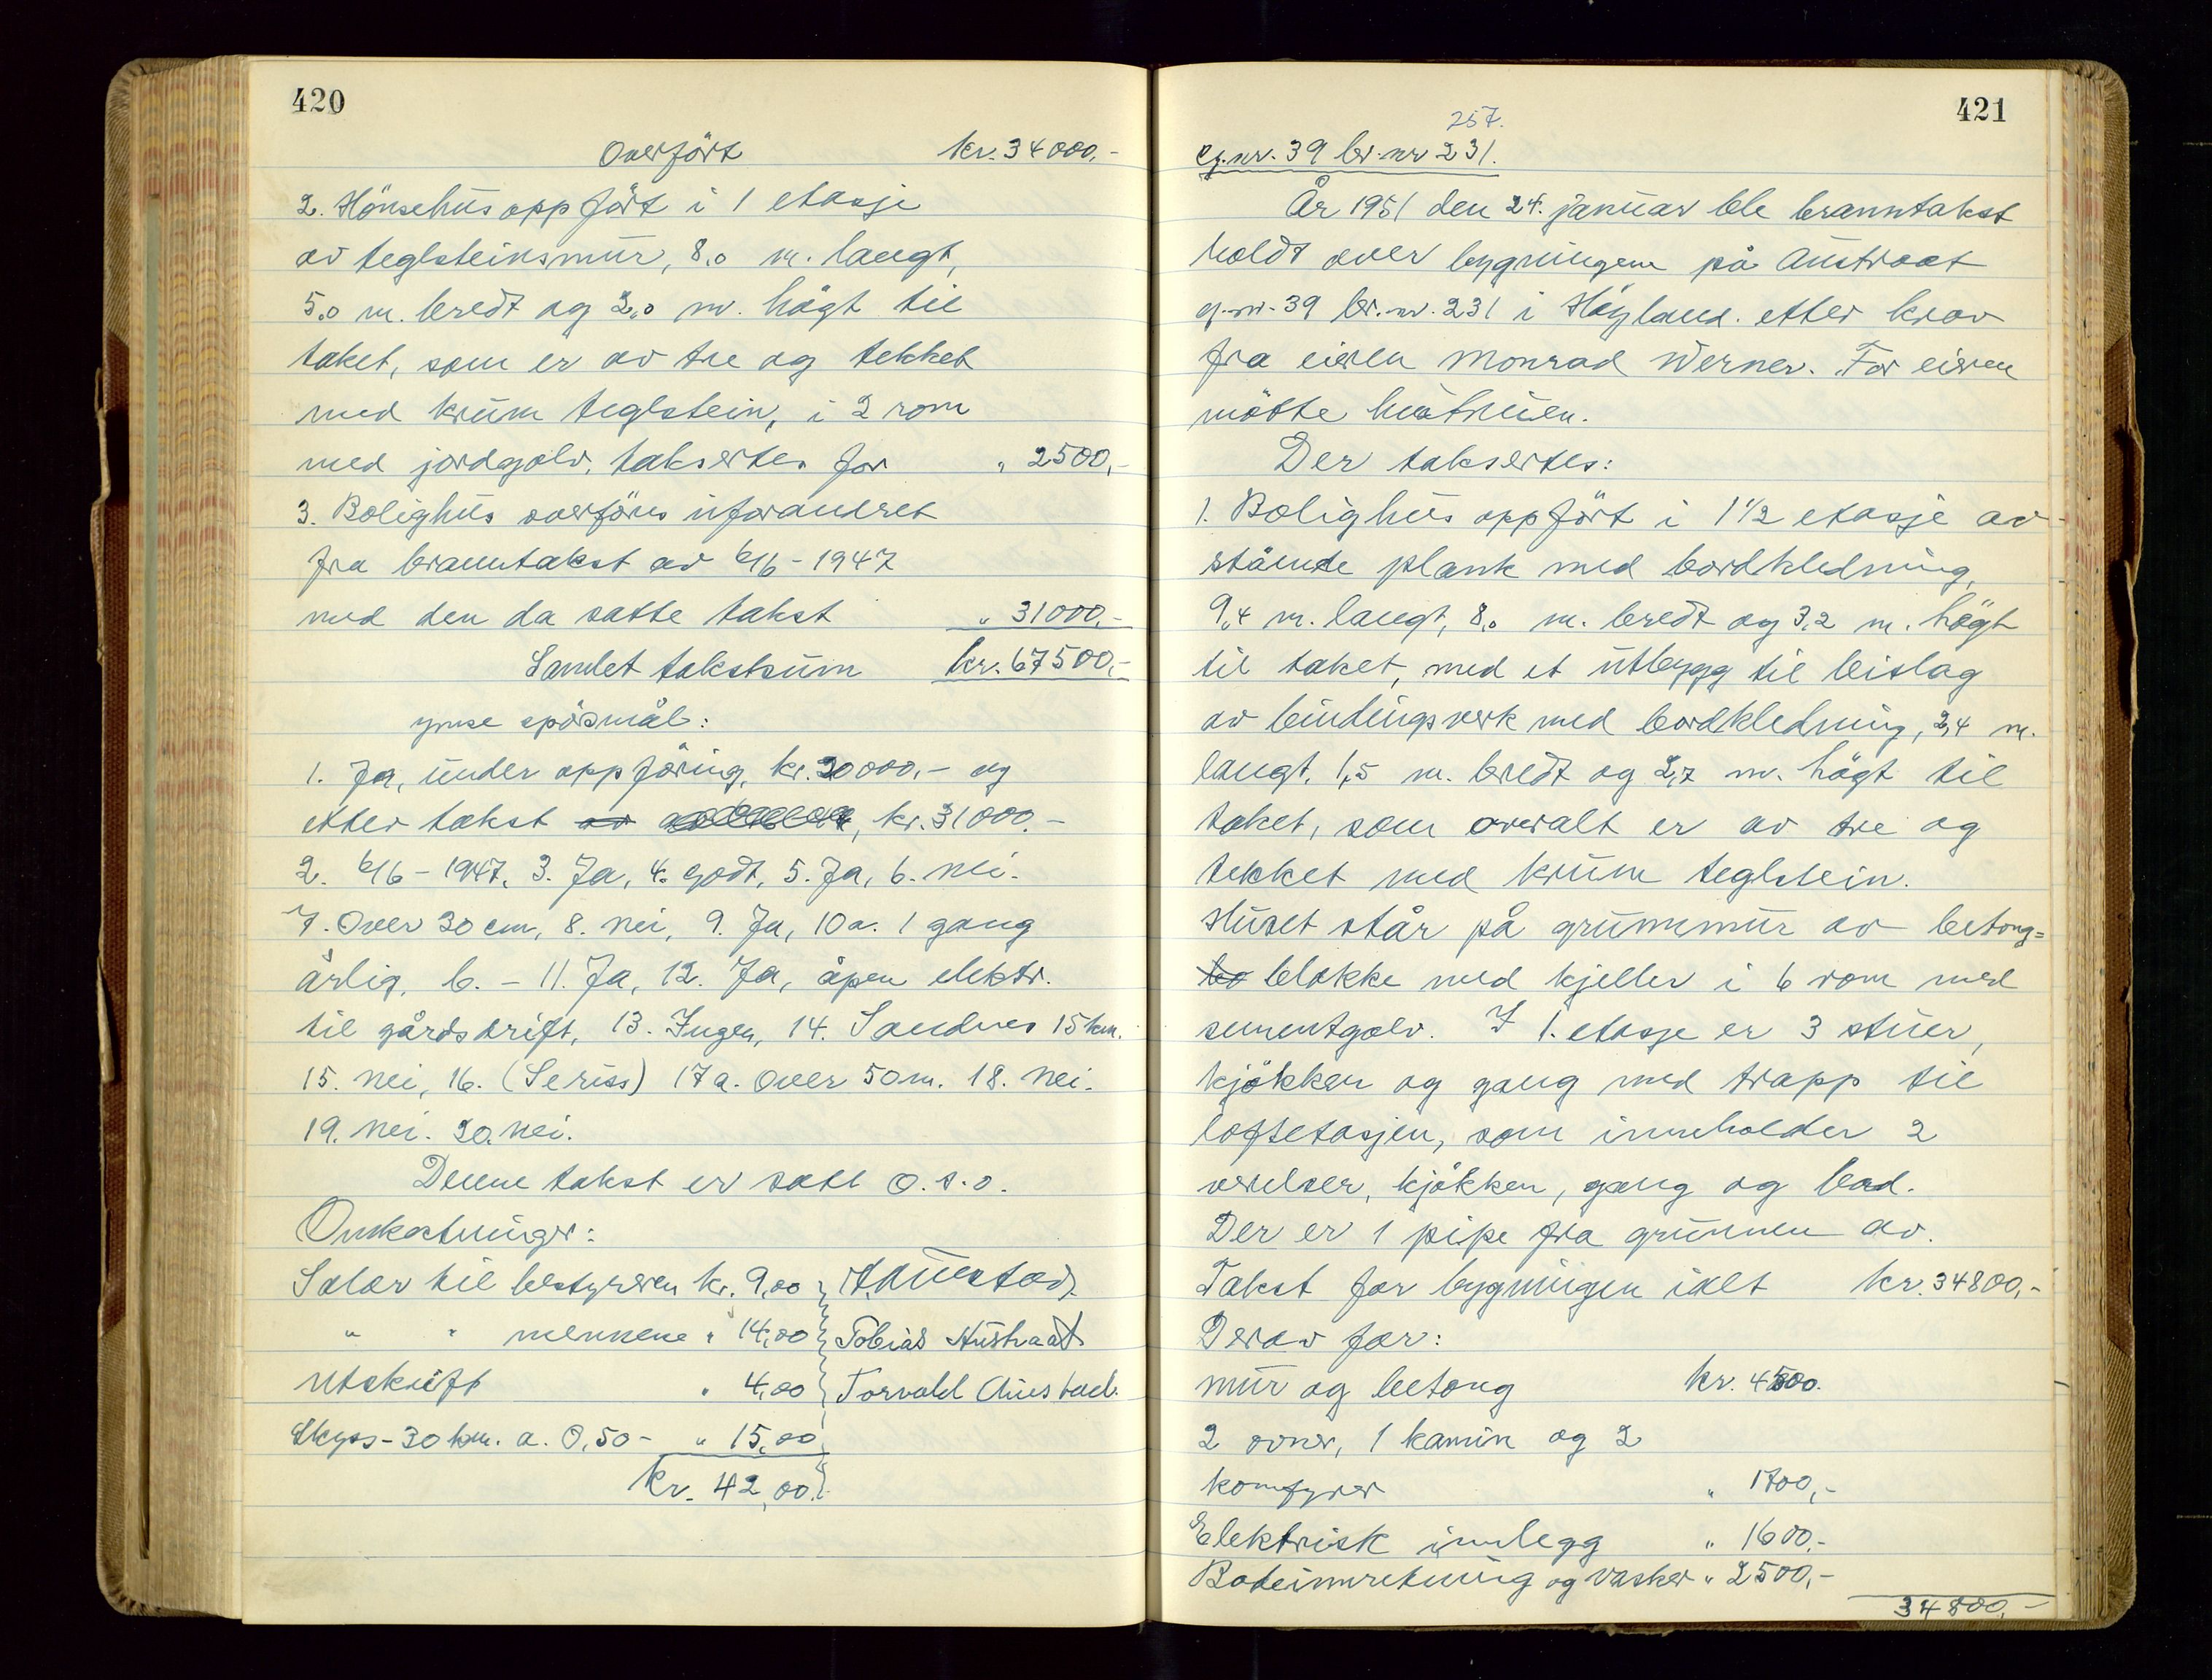 420
Overfört kr. 34000,-
2. Hönsehus oppfört i 1 etasje
av teglsteinsmur, 8,0 m. langt,
5,0 m. bredt og 2,0 m. högt til
taket, som er av tre og tekket
med krum teglstein, i 2 rom
med jordgolv, takseres for " 2500,-
3. Bolighus overföres uforandret
fra branntakst av 6/6-1947
med den da satte takst " 31000.-
Samlet takstsum kr. 67500,-
ymse spörsmål:
1. Ja, under oppföring, kr. 20000,- og
etter takst av kr. 31000.-
2. 6/6-1947, 3. Ja, 4. godt, 5. Ja, 6. nei.
7. Over 30 cm, 8. nei, 9. Ja, 10a. 1 gang
årlig, b. - 11. Ja, 12. Ja, åpen elektr.
til gårdsdrift, 13. Ingen, 14. Sandnes 15 km.
15. nei, 16. (Seriss) 17a. Over 50 m. 18. nei.
19. nei. 20. nei.
Denne takst er satt O.s.o.
Omkostninger:
Salær til bestyreren kr. 9,00
" " mennene " 14,00 Tobias Austraat
Utskrift " 4,00 Torvald Austad.
Skyss-30 km. a. 0,50- " 15,00
kr. 42,00.
421
257.
g.nr. 39 br.nr 231.
År 1951 den 24. januar ble branntakst
holdt over bygningene på Austraat
g.nr. 39 br.nr. 231 i Høyland. etter krav
fra eieren Monrad Werner. For eieren
mötte hustruen.
Der takseres:
1. Bolighus oppfört i 1 1/2 etasje av
stående plank med bordkledning,
9,4 m. langt, 8,0 m. bredt og 3,2 m. högt
til taket, med et utbygg til bislag
av bindingsverk med bordkledning, 2,4 m.
langt, 1,5 m. bredt og 2,7 m. högt til
taket, som overalt er av tre og
tekket med krum teglstein.
Huset står på grunnmur av betong=
blokke med kjeller i 6 rom med
sementgolv. I 1. etasje er 3 stuer,
kjökken og gang med trapp til
loftetasjen, som inneholder 2
værelser, kjökken, gang og bad.
Der er 1 pipe fra grunnen av.
Takst for bygningen ialt kr. 34800,-
Derav for:
mur og betong kr. 4500.
2 ovner, 1 kamin og 2
komfyrer " 1700,-
Elektrisk innlegg " 1600.-
Badeinnretning og vasker " 2500,-
34800,-